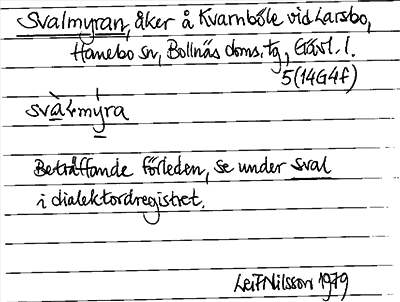 Svalmyran, åker å Kvarnböle vid Larsbo,
Hanebo sn, Bollnäs doms.tg, Gävl. l.
5(14G4f)
svàLmýra
Beträffande förleden, se under sval
i dialektordregistret.
Leif Nilsson 1979